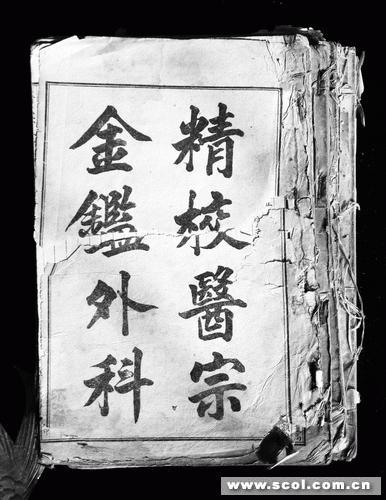 精校醫宗
金鑑外科
www.scol.com.cn